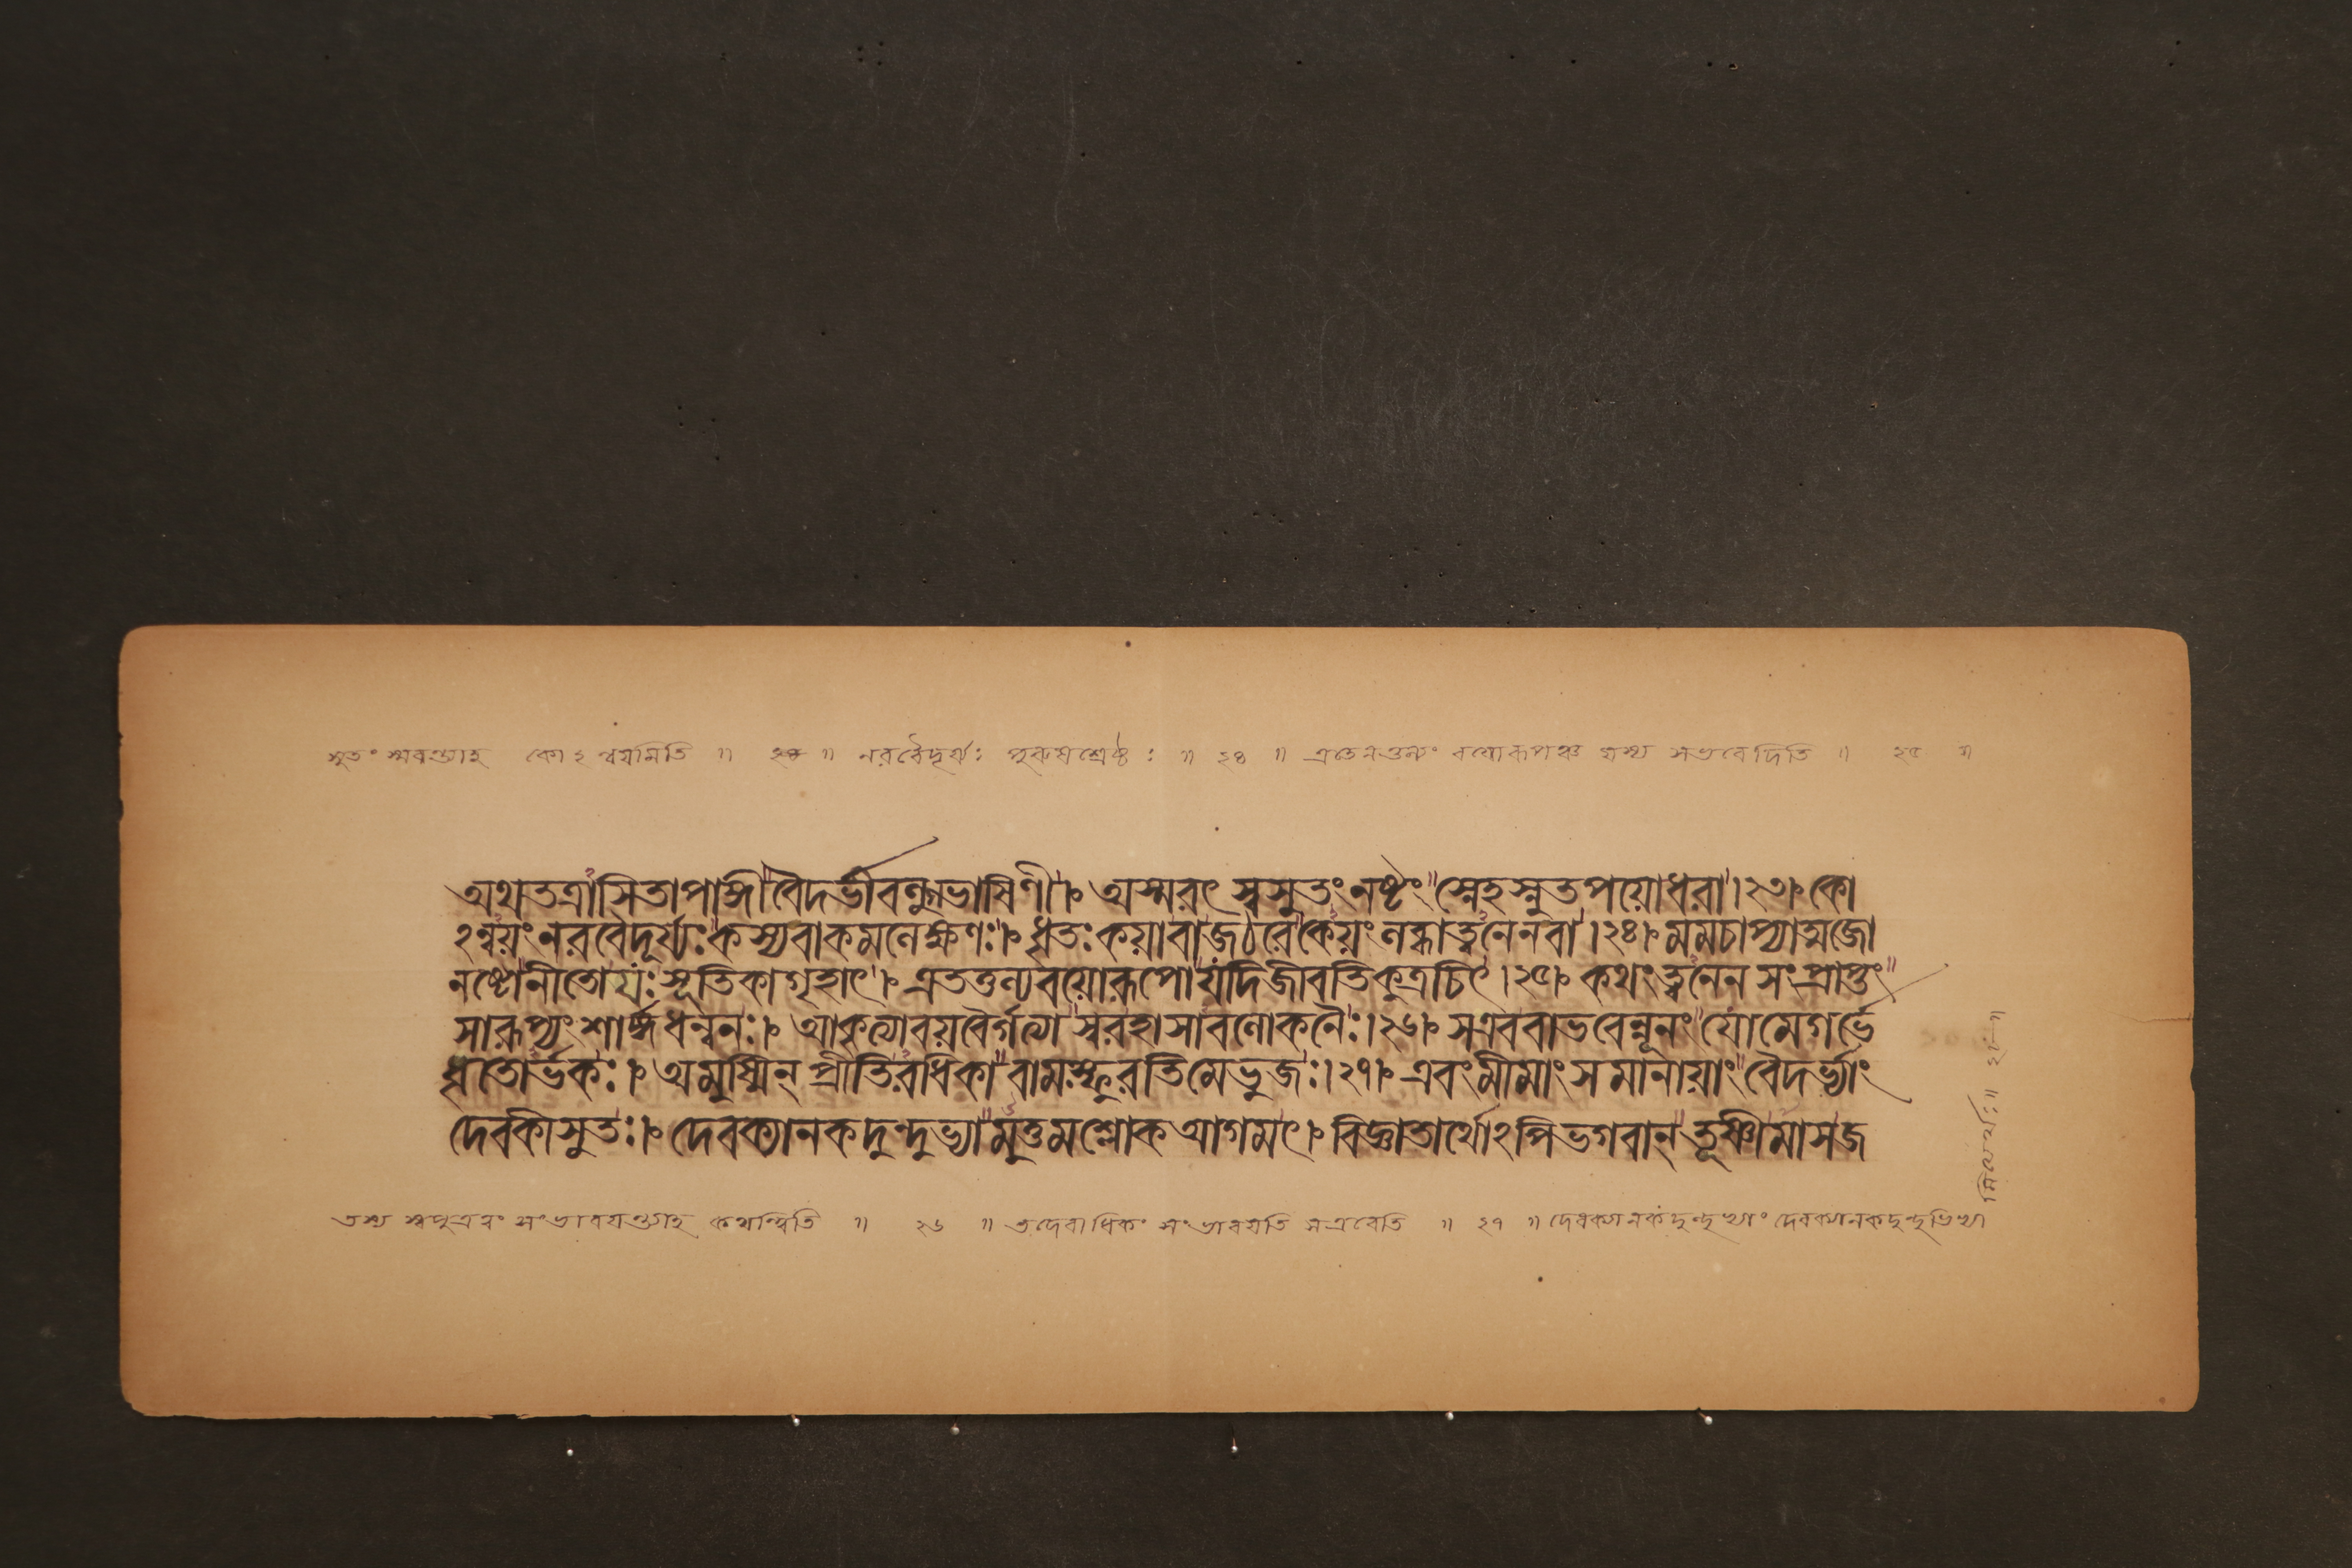 সুতং স্মরন্ত্যাহ কোঽন্বয়মিতি ॥ ২৪ ॥ নরবৈদূর্য্যঃ পুরুষশ্রেষ্ঠঃ ॥ ২৪ ॥ এতেনতুল্যং বয়োরূপঞ্চ যস্য সভবেদিতি ॥ ২৫ ॥
অথতত্রাসিতাপাঙ্গীবৈদর্ভীবল্গুভাষিণী।৷ অস্মরৎ স্বসুতংনষ্টং স্নেহস্নুতপয়োধরা।২৩।৷ কো
ঽন্বয়ংনরবৈদূর্য্যঃকস্যবাকমলেক্ষণঃ।৷ ধৃতঃকয়াবাজঠরেকেয়ংলব্ধাত্বনেনবা।২৪।৷ মমচাপ্যাত্মজো
নষ্টোনীতোয়ঃসূতিকাগৃহাৎ।৷ এতত্তুল্যবয়োরূপোয়দিজীবতিকুত্রচিৎ।২৫।৷ কথংত্বনেন সংপ্রাপ্তং
সারূপ্যংশার্ঙ্গধন্বনঃ।৷ আকৃত্যাবয়বৈর্গত্যাস্বরহাসাবলোকনৈঃ।২৬।৷ সএববাভবেন্নূনংয়োমেগর্ভে
ধৃতোর্ভকঃ।৷ অমুষ্মিন্ প্রীতিরধিকাবামস্ফুরতিমেভুজঃ।২৭।৷ এবংমীমাংসমানায়াংবৈদর্ভ্যাং
দেবকীসুতঃ।৷ দেবক্যানকদুন্দুভ্যামুত্তমশ্লোকআগমৎ।৷ বিজ্ঞাতার্থোঽপিভগবান্ তূষ্ণীমাসজ
তস্য স্বপুত্রত্বং সংভাবয়ন্ত্যাহ কথন্ত্বিতি ॥ ২৬ ॥ তদেবাধিকং সংভাবয়তি সএবেতি ॥ ২৭ ॥ দেবক্যানকদুন্দুভ্যাং দেবক্যানকদুন্দুভিভ্যা
মিত্যর্থঃ॥ ২৮॥